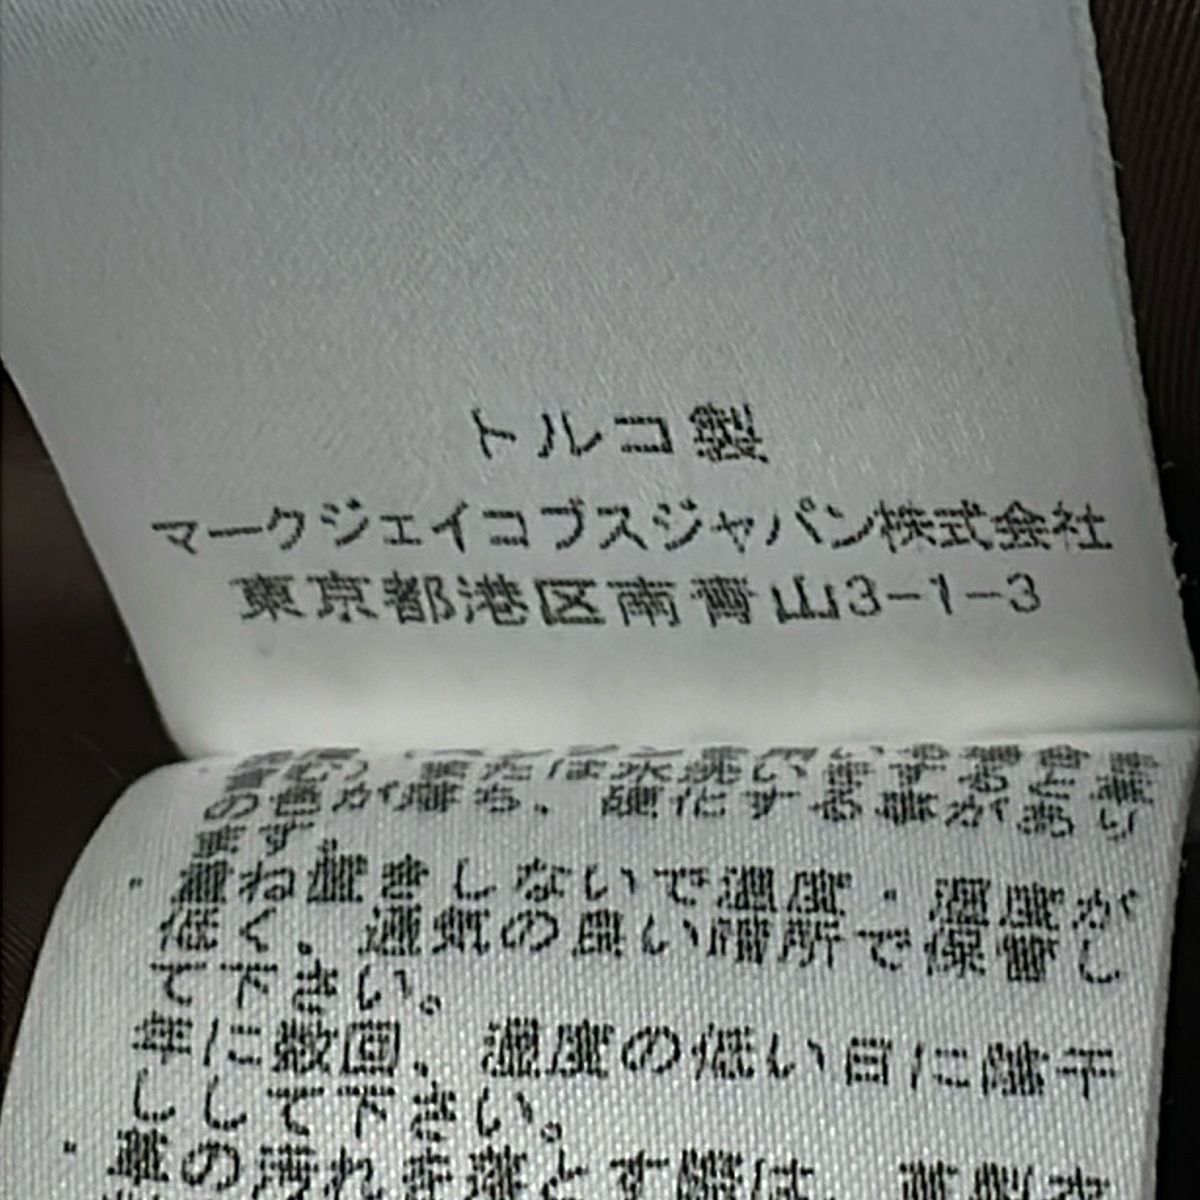 トルコ製
マークジェイコブスジャパン株式会社
東京都港区南青山3-1-3
の色が落ち、硬化する事があり
ます。
・重ね置きしないで温度・湿度が
低く、通気の良い暗所で保管し
て下さい。
年に数回、湿度の低い日に陰干
しして下さい。
・革の汚れを落とす際は、